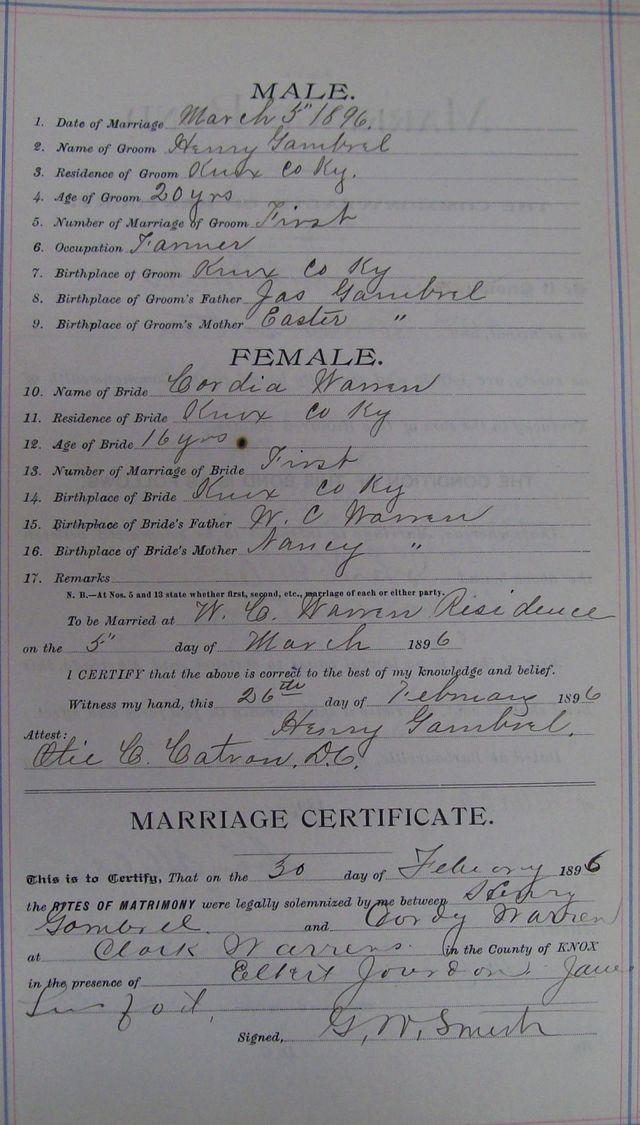 MALE.
1. Date of Marriage March 5" 1896.
2. Name of Groom Henry Gambrel
3. Residence of Groom Knox Co Ky.
4. Age of Groom 20 yrs
5. Number of Marriage of Groom First
6. Occupation Farmer
7. Birthplace of Groom Knox Co Ky
8. Birthplace of Groom's Father Jas Gambrel
9. Birthplace of Groom's Mother Easter "
FEMALE.
10. Name of Bride Cordia Warren
11. Residence of Bride Knox Co Ky
12. Age of Bride 16 yrs
13. Number of Marriage of Bride First
14. Birthplace of Bride Knox Co Ky
15. Birthplace of Bride's Father W. C Warren
16. Birthplace of Bride's Mother Nancy "
17. Remarks
N. B.—At Nos. 5 and 13 state whether first, second, etc., marriage of each or either party.
To be Married at W. C. Warren Residence
on the 5" day of March 1896
I CERTIFY that the above is correct to the best of my knowledge and belief.
Witness my hand, this 26th day of February 1896
Henry Gambrel.
Attest:
Otie C. Catron, D.C.
MARRIAGE CERTIFICATE.
This is to Certify, That on the 30 day of Febuory 1896
the RITES OF MATRIMONY were legally solemnized by me between Henry
Gombrel. and Cordy Warren
at Clark Warrens. in the County of KNOX
in the presence of Elbert Jourdon Jane
Signed, G, W, Smith